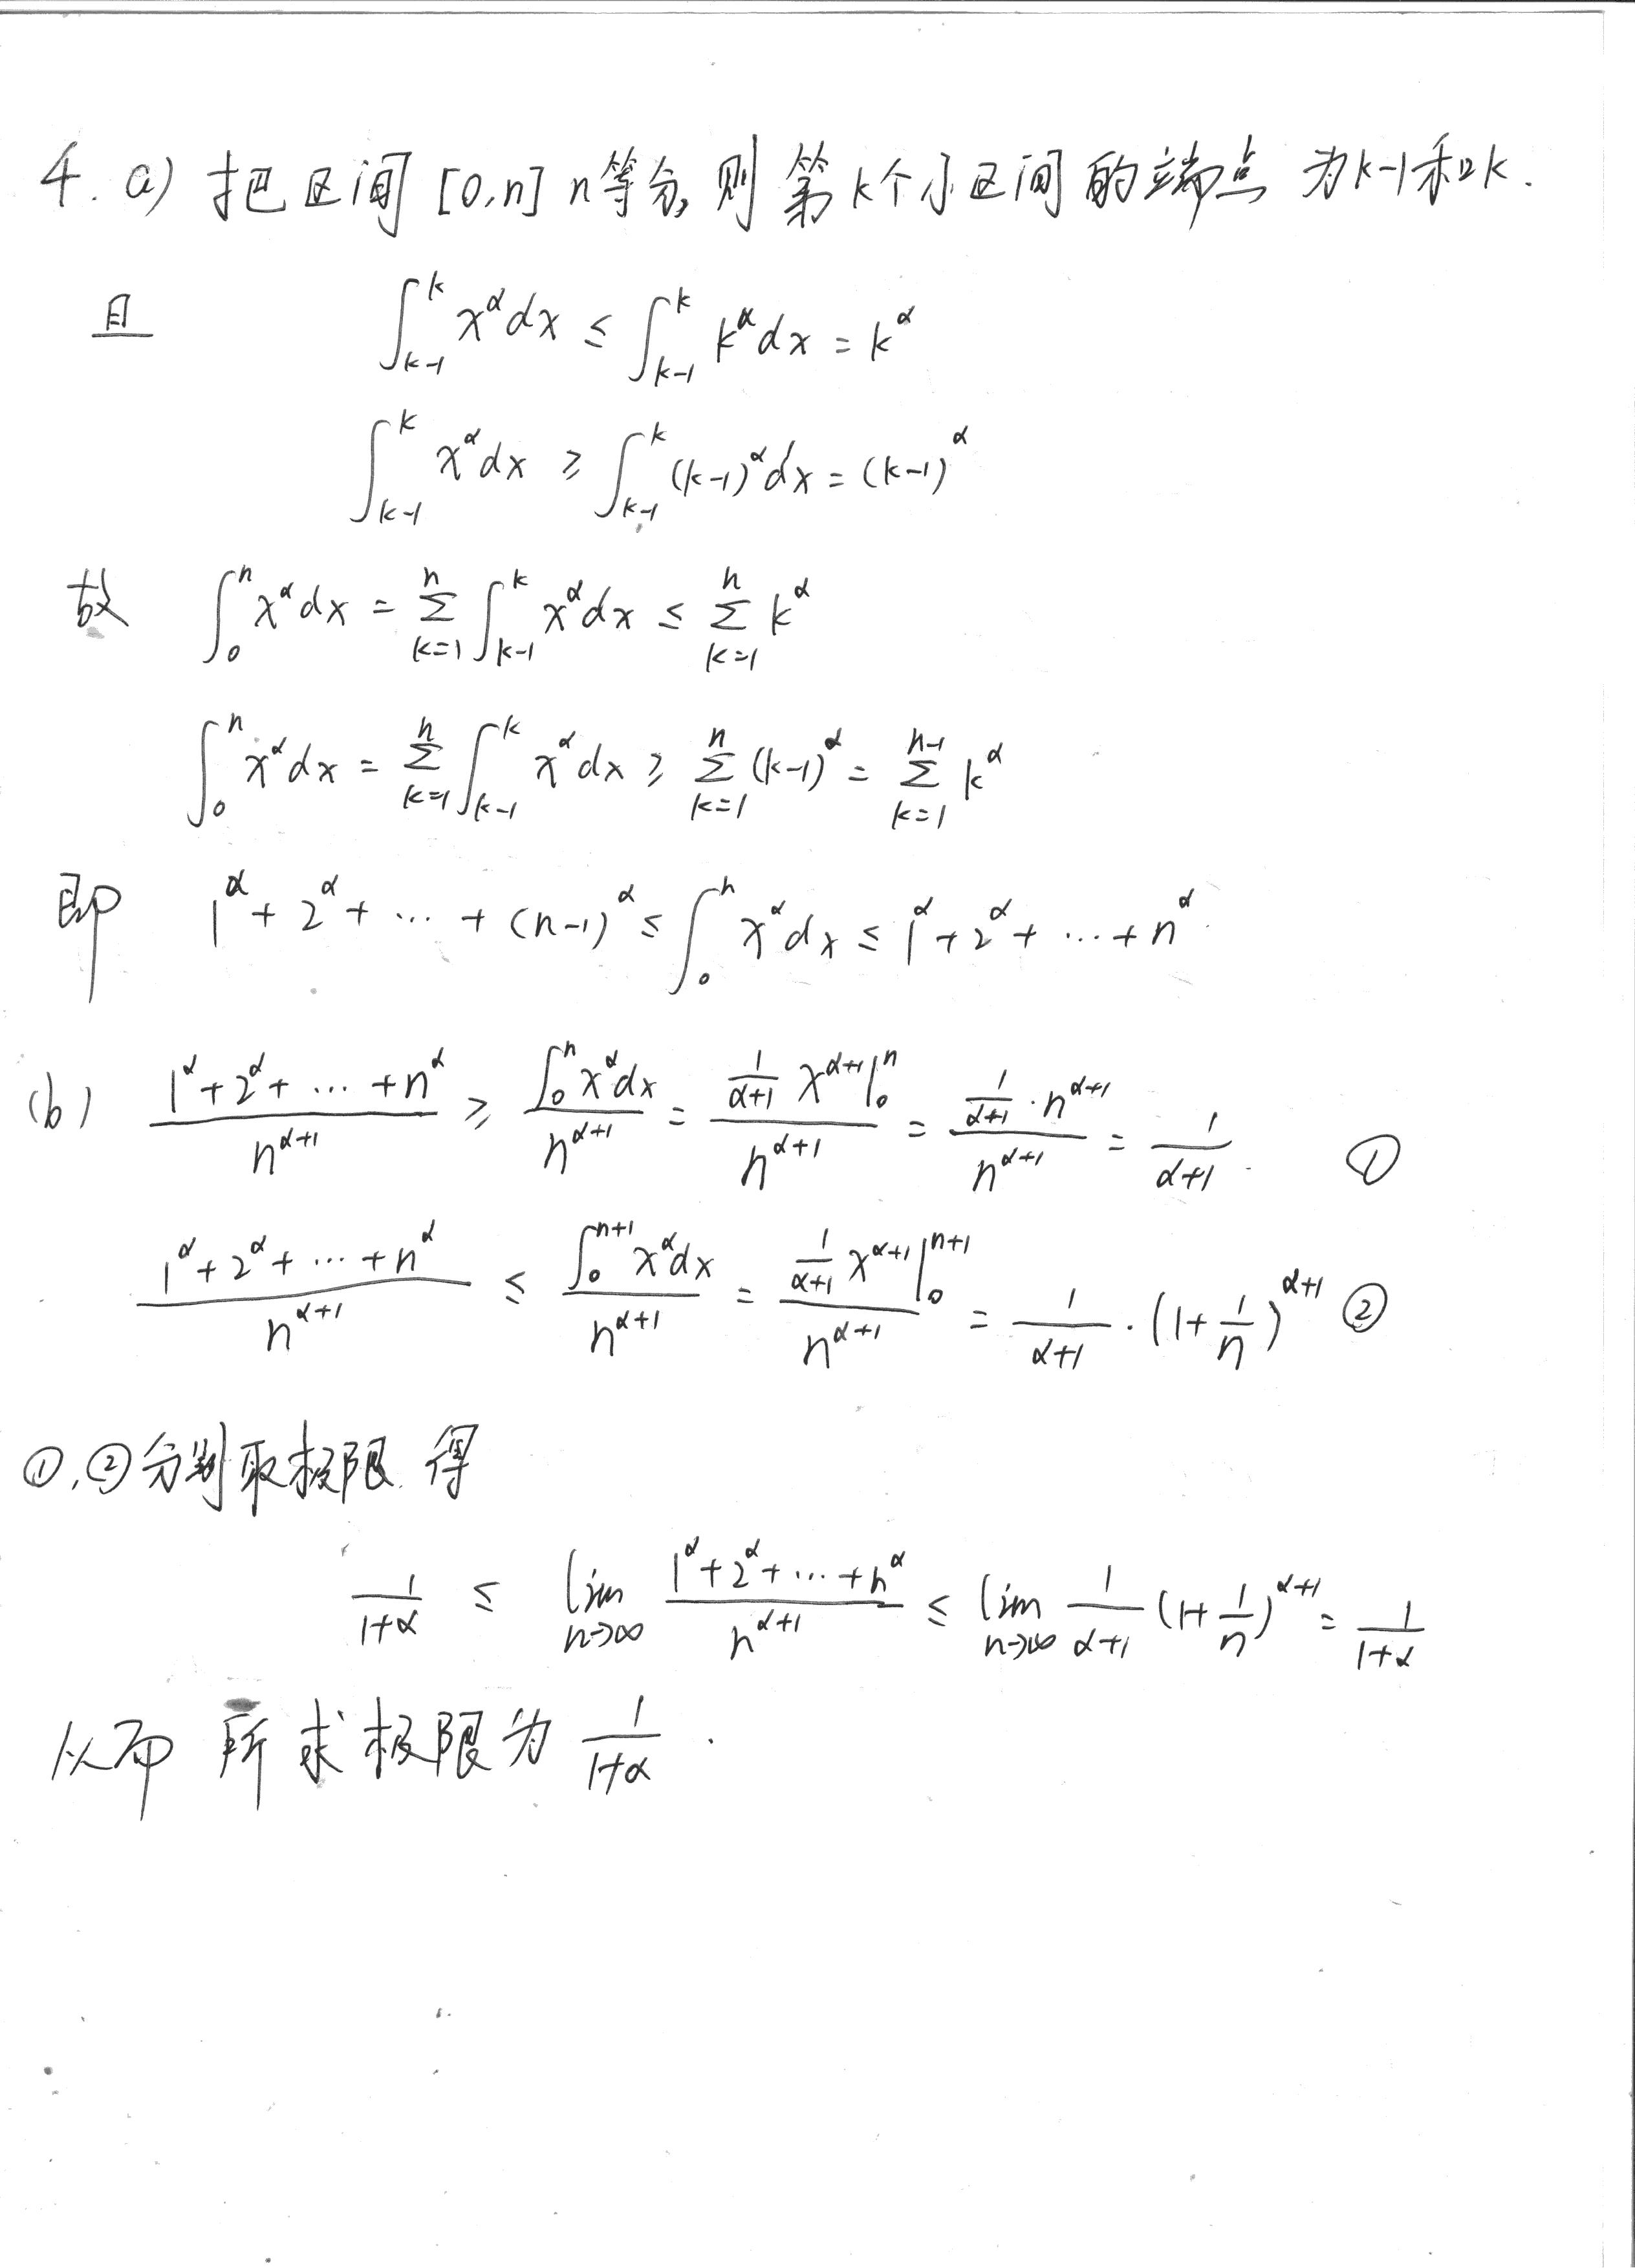 4. a) 把区间 [0,n] n等分, 则 第k个小区间的端点 为k-1和k.
且 ∫_{k-1}^{k} x^α dx ≤ ∫_{k-1}^{k} k^α dx = k^α
∫_{k-1}^{k} x^α dx ≥ ∫_{k-1}^{k} (k-1)^α dx = (k-1)^α
故 ∫_0^n x^α dx = ∑_{k=1}^{n} ∫_{k-1}^{k} x^α dx ≤ ∑_{k=1}^{n} k^α
∫_0^n x^α dx = ∑_{k=1}^{n} ∫_{k-1}^{k} x^α dx ≥ ∑_{k=1}^{n} (k-1)^α = ∑_{k=1}^{n-1} k^α
即 1^α + 2^α + … + (n-1)^α ≤ ∫_0^n x^α dx ≤ 1^α + 2^α + … + n^α.
(b) \frac{1^α + 2^α + … + n^α}{n^{α+1}} ≥ \frac{∫_0^n x^α dx}{n^{α+1}} = \frac{\frac{1}{α+1} x^{α+1} |_0^n}{n^{α+1}} = \frac{\frac{1}{α+1} · n^{α+1}}{n^{α+1}} = \frac{1}{α+1}. ①
\frac{1^α + 2^α + … + n^α}{n^{α+1}} ≤ \frac{∫_0^{n+1} x^α dx}{n^{α+1}} = \frac{\frac{1}{α+1} x^{α+1} |_0^{n+1}}{n^{α+1}} = \frac{1}{α+1} · (1+\frac{1}{n})^{α+1} ②
①,②分别取极限 得
\frac{1}{1+α} ≤ lim_{n→∞} \frac{1^α + 2^α + … + n^α}{n^{α+1}} ≤ lim_{n→∞} \frac{1}{α+1} (1+\frac{1}{n})^{α+1} = \frac{1}{1+α}
从而 所求极限为 \frac{1}{1+α}.